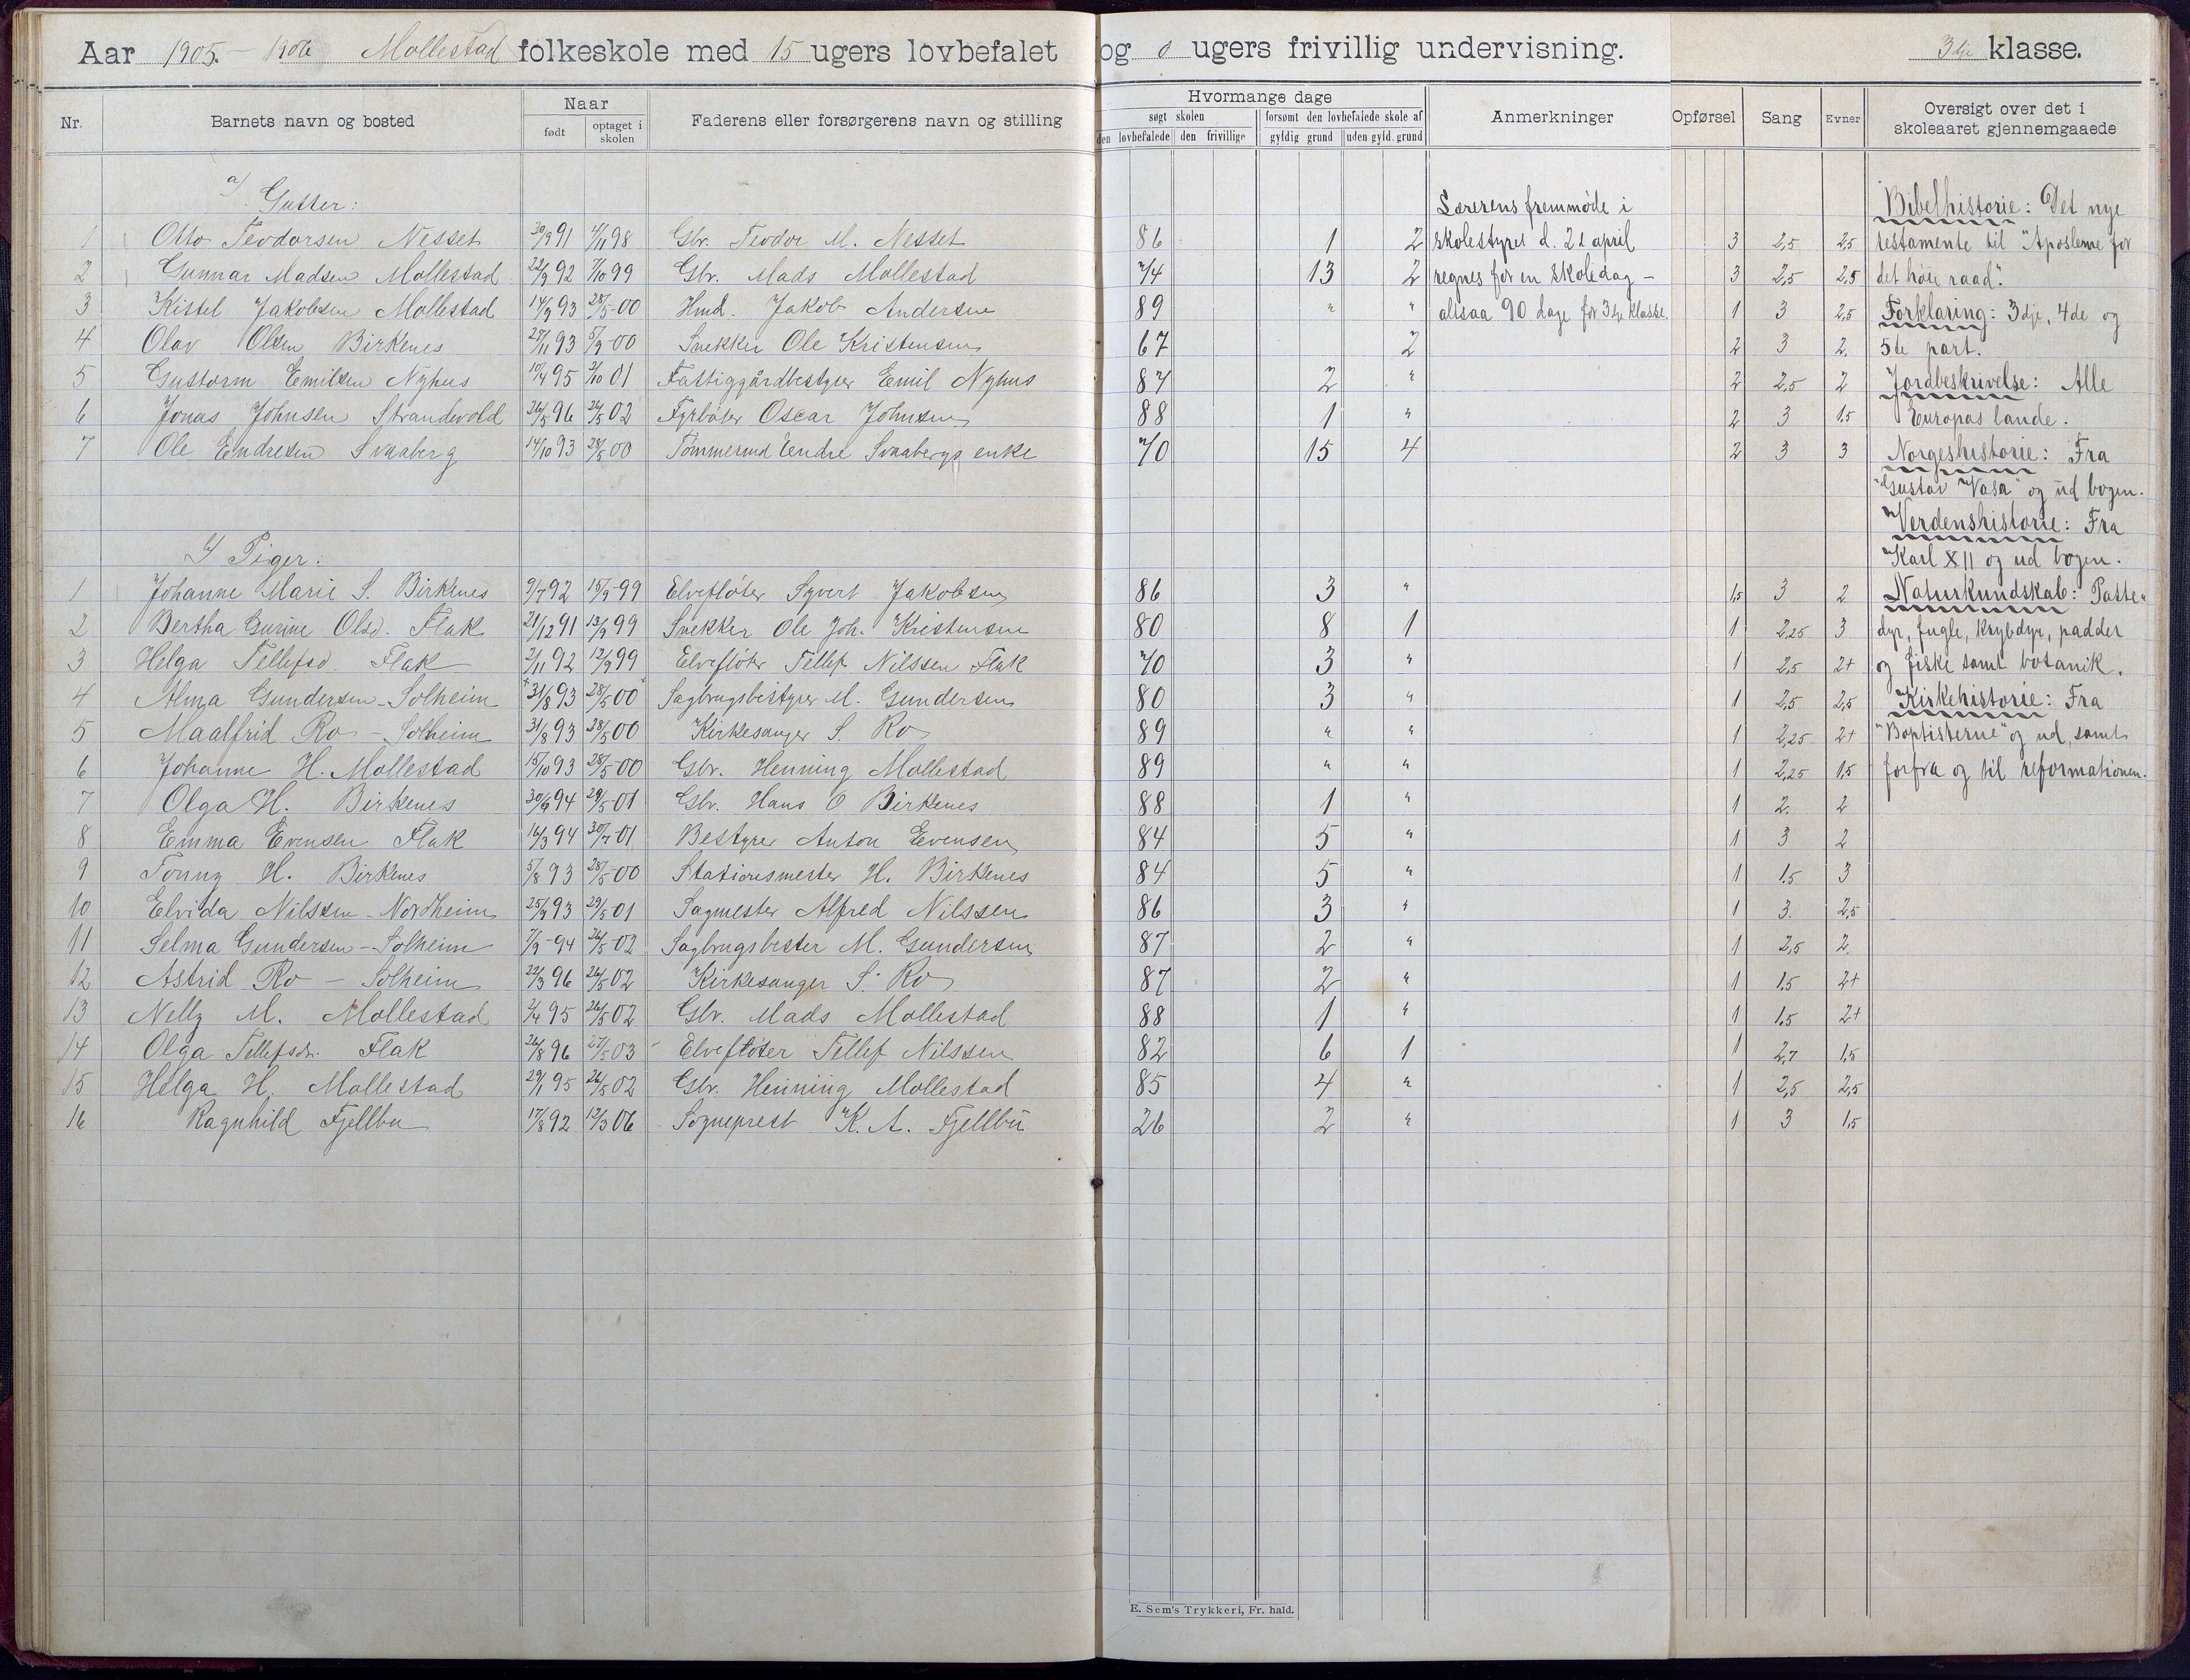 Aar 1905.–1906 Mollestad folkeskole med 15 ugers lovbefalet og 0 ugers frivillig undervisning. 3dje klasse.
Nr. Barnets navn og bosted Naar født optaget i skolen Faderens eller forsørgerens navn og stilling Hvormange dage søgt skolen den lovbefalede den frivillige forsømt den lovbefalede skole af gyldig grund uden gyld. grund Anmerkninger Opførsel Sang Evner Oversigt over det i skoleaaret gjennemgaaede
a) Gutter: Lærerens fremmøde i Bibelhistorie: Det nye
1 Otto Teodorsen Nesset 30/9 91 4/11 98 Gbr. Teodor M. Nesset 86 1 2 skolestyret d. 21 april 3 2,5 2,5 testamente til "Apostlerne for
2 Gunnar Madsen Mollestad 22/9 92 7/10 99 Gbr. Mads Mollestad 74 13 2 regnes for en skoledag – 3 2,5 2,5 det høie raad".
3 Kittel Jakobsen Mollestad 14/9 93 28/5-00 Hmd. Jakob Andersen 89 " " altsaa 90 dage for 3dje klasse. 1 3 2,5 Forklaring: 3dje, 4de og
4 Olav Olsen Birkenes 27/11 93 5/9-00 Snekker Ole Kristensen 67 2 2 3 2. 5te part.
5 Guttorm Emilsen Nyhus 10/4 95 2/10 01 Fattiggårdbestyrer Emil Nyhus 87 2 " 2 2,5 2 Jordbeskrivelse: Alle
6 Jonas Johnsen Strandvold 26/5 96 26/5 02 Fyrbøter Oscar Johnsen 88 1 " 2 3 1.5 Europas lande.
7 Ole Endresen Svaaberg 14/10 93 28/5 00 Tømmermd Endre Svaabergs enke 70 15 4 2 3 3 Norgeshistorie: Fra
"Gustav Vasa" og ud bogen.
Verdenshistorie: Fra
Piger: Karl XII og ud bogen.
1 Johanne Marie S. Birkenes 9/7 92 15/9-99 Elvefløter Syvert Jakobsen 86 3 " 1,5 3 2 Naturkundskab: Patte-
2 Bertha Gurine Olsd. Flak 21/12 91 13/9 99 Snekker Ole Joh. Kristensen 80 8 1 1 2,25 3 dyr, fugle, krybdyr, padder
3 Helga Tellefsd. Flak 2/11 92 12/9 99 Elvefløter Tellef Nilssen Flak 70 3 " 1 2,5 2+ og fiske samt botanik.
4 Alma Gundersen – Solheim 31/8 93 28/5 00 Sagbrugsbestyrer M. Gundersen 80 3 " 1 2,5 2,5 Kirkehistorie: Fra
5 Maalfrid Ro – Solheim 31/8 93 28/5 00 Kirkesanger S. Ro 89 " " 1 2,25 2+ "Baptisterne" og ud, samt
6 Johanne H. Mollestad 15/10 93 28/5-00 Gbr. Henning Mollestad 89 " " 1 2,25 1,5 forfra og til reformationen.
7 Olga H. Birkenes 30/9 94 29/5-01 Gbr. Hans O Birkenes 88 1 " 1 2. 2
8 Emma Evensen Flak 16/3 94 30/7-01 Bestyrer Anton Evensen 84 5 " 1 3 2
9 Tonny H. Birkenes 5/8 93 28/5-00 Stationsmester H. Birkenes 84 5 " 1 1.5 3
10 Elvida Nilssen – Nordheim 25/9 93 29/5 01 Sagmester Alfred Nilssen 86 3 " 1 3. 2,5
11 Selma Gundersen – Solheim 7/9-94 26/5 02 Sagbrugsbester M. Gundersen 87 2 " 1 2,5 2.
12 Astrid Ro – Solheim 22/3 96 26/5 02 Kirkesanger S. Ro 87 2 " 1 1.5 2+
13 Nelly M. Mollestad 2/4 95 26/5 02 Gbr. Mads Mollestad 88 1 " 1 1.5 2+
14 Olga Tellefsdr. Flak 26/8 96 27/5-03 Elvefløter Tellef Nilssen 82 6 1 1 2,7 1,5
15 Helga H. Mollestad 29/1 95 26/5 02 Gbr. Henning Mollestad 85 4 " 1 2,5 2,5
16 Ragnhild Fjellbu 17/8 92 12/3 06 Sogneprest K. A. Fjellbu 26 2 " 1 3 1,5
E. Sem's Trykkeri, Fr. hald.